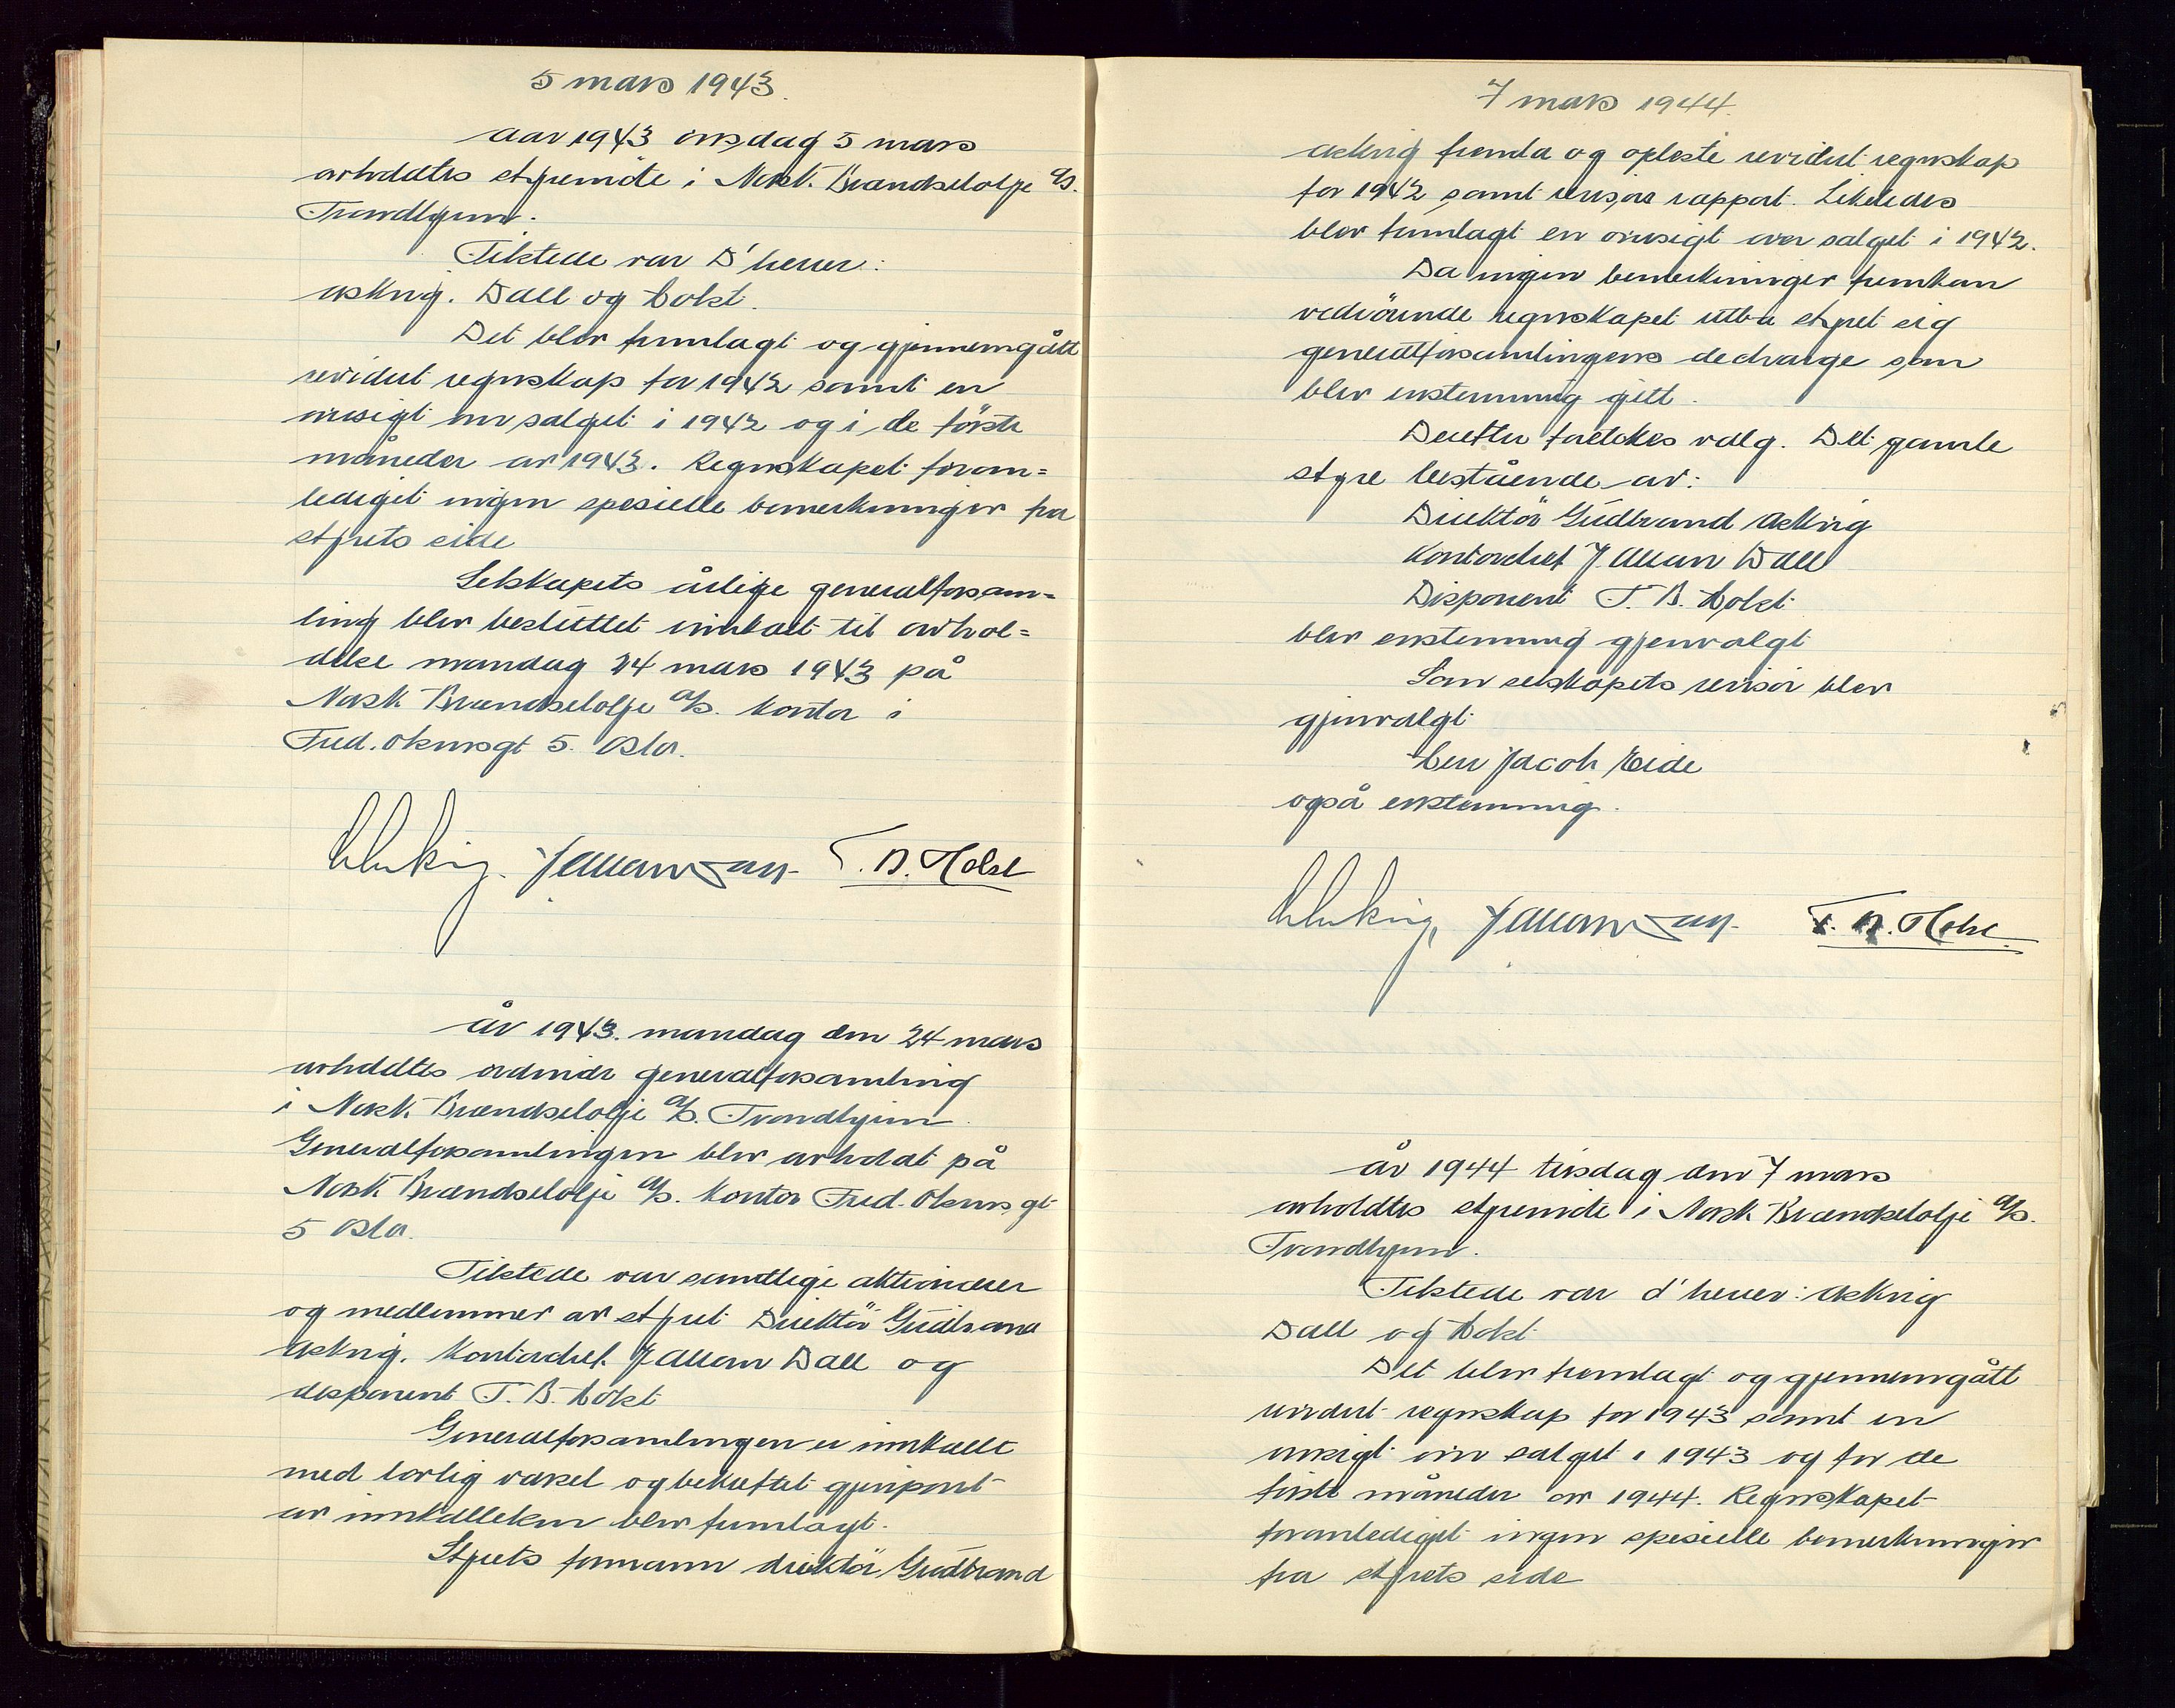 5 mars 1943.
Aar 1943 onsdag 5 mars
avholdtes styremöte i Norsk Brændselolje A/S.
Trondhjem.
Tilstede var D'herrer:
Askvig. Dall og Holst.
Det blev fremlagt og gjennemgått
revidert regnskap for 1942 samt en
oversigt over salget i 1942 og i de förste
måneder av 1943. Regnskapet foran=
lediget ingen spesielle bemerkninger fra
styrets side
Selskapets årlige generalforsam=
ling blev besluttet innkalt til avhol=
delse mandag 24 mars 1943 på
Norsk Brændselolje A/S. kontor i
Fred. Olsensgt 5. Oslo.
T. B. Holst
År 1943. mandag den 24 mars
avholdtes ordinær generalforsamling
i Norsk Brændselolje A/S. Trondhjem.
Generalforsamlingen blev avholdt på
Norsk Brændselolje A/S. kontor Fred. Olsens gt
5 Oslo.
Tilstede var samtlige aktionærer
og medlemmer av styret Direktör Gudbrand
Askvig. Kontorchef. J Allan Dall og
disponent T. B. Holst
Generalforsamlingen er innkallt
med lovlig varsel og bekreftet gjenpart
av innkallelsen blev fremlagt.
Styrets formann direktör Gudbrand
7 mars 1944.
Askvig fremla og opleste revidert regnskap
for 1942 samt revisors rapport. Likeledes
blev fremlagt en oversigt over salget i 1942.
Da ingen bemerkninger fremkom
vedrörende regnskapet utba styret sig
generalforsamlingens decharge som
blev enstemmig gitt.
Derefter foretokes valg. Det gamle
styre bestående av:
Direktör Gudbrand Askvig
Kontorchef J. Allan Dall
Disponent T. B. Holst
blev enstemmig gjenvalgt
Som selskapets revisor blev
gjenvalgt
Herr Jacob Eide
også enstemmig.
T. B. Holst.
År 1944 tirsdag den 7 mars
avholdtes styremöte i Norsk Brændselolje A/S.
Trondhjem.
Tilstede var d'herrer: Askvig
Dall og Holst
Det blev fremlagt og gjennemgått
revidert regnskap for 1943 samt en
oversigt over salget i 1943 og for de
förste måneder av 1944. Regnskapet
foranlediget ingen spesielle bemerkninger
fra styrets side